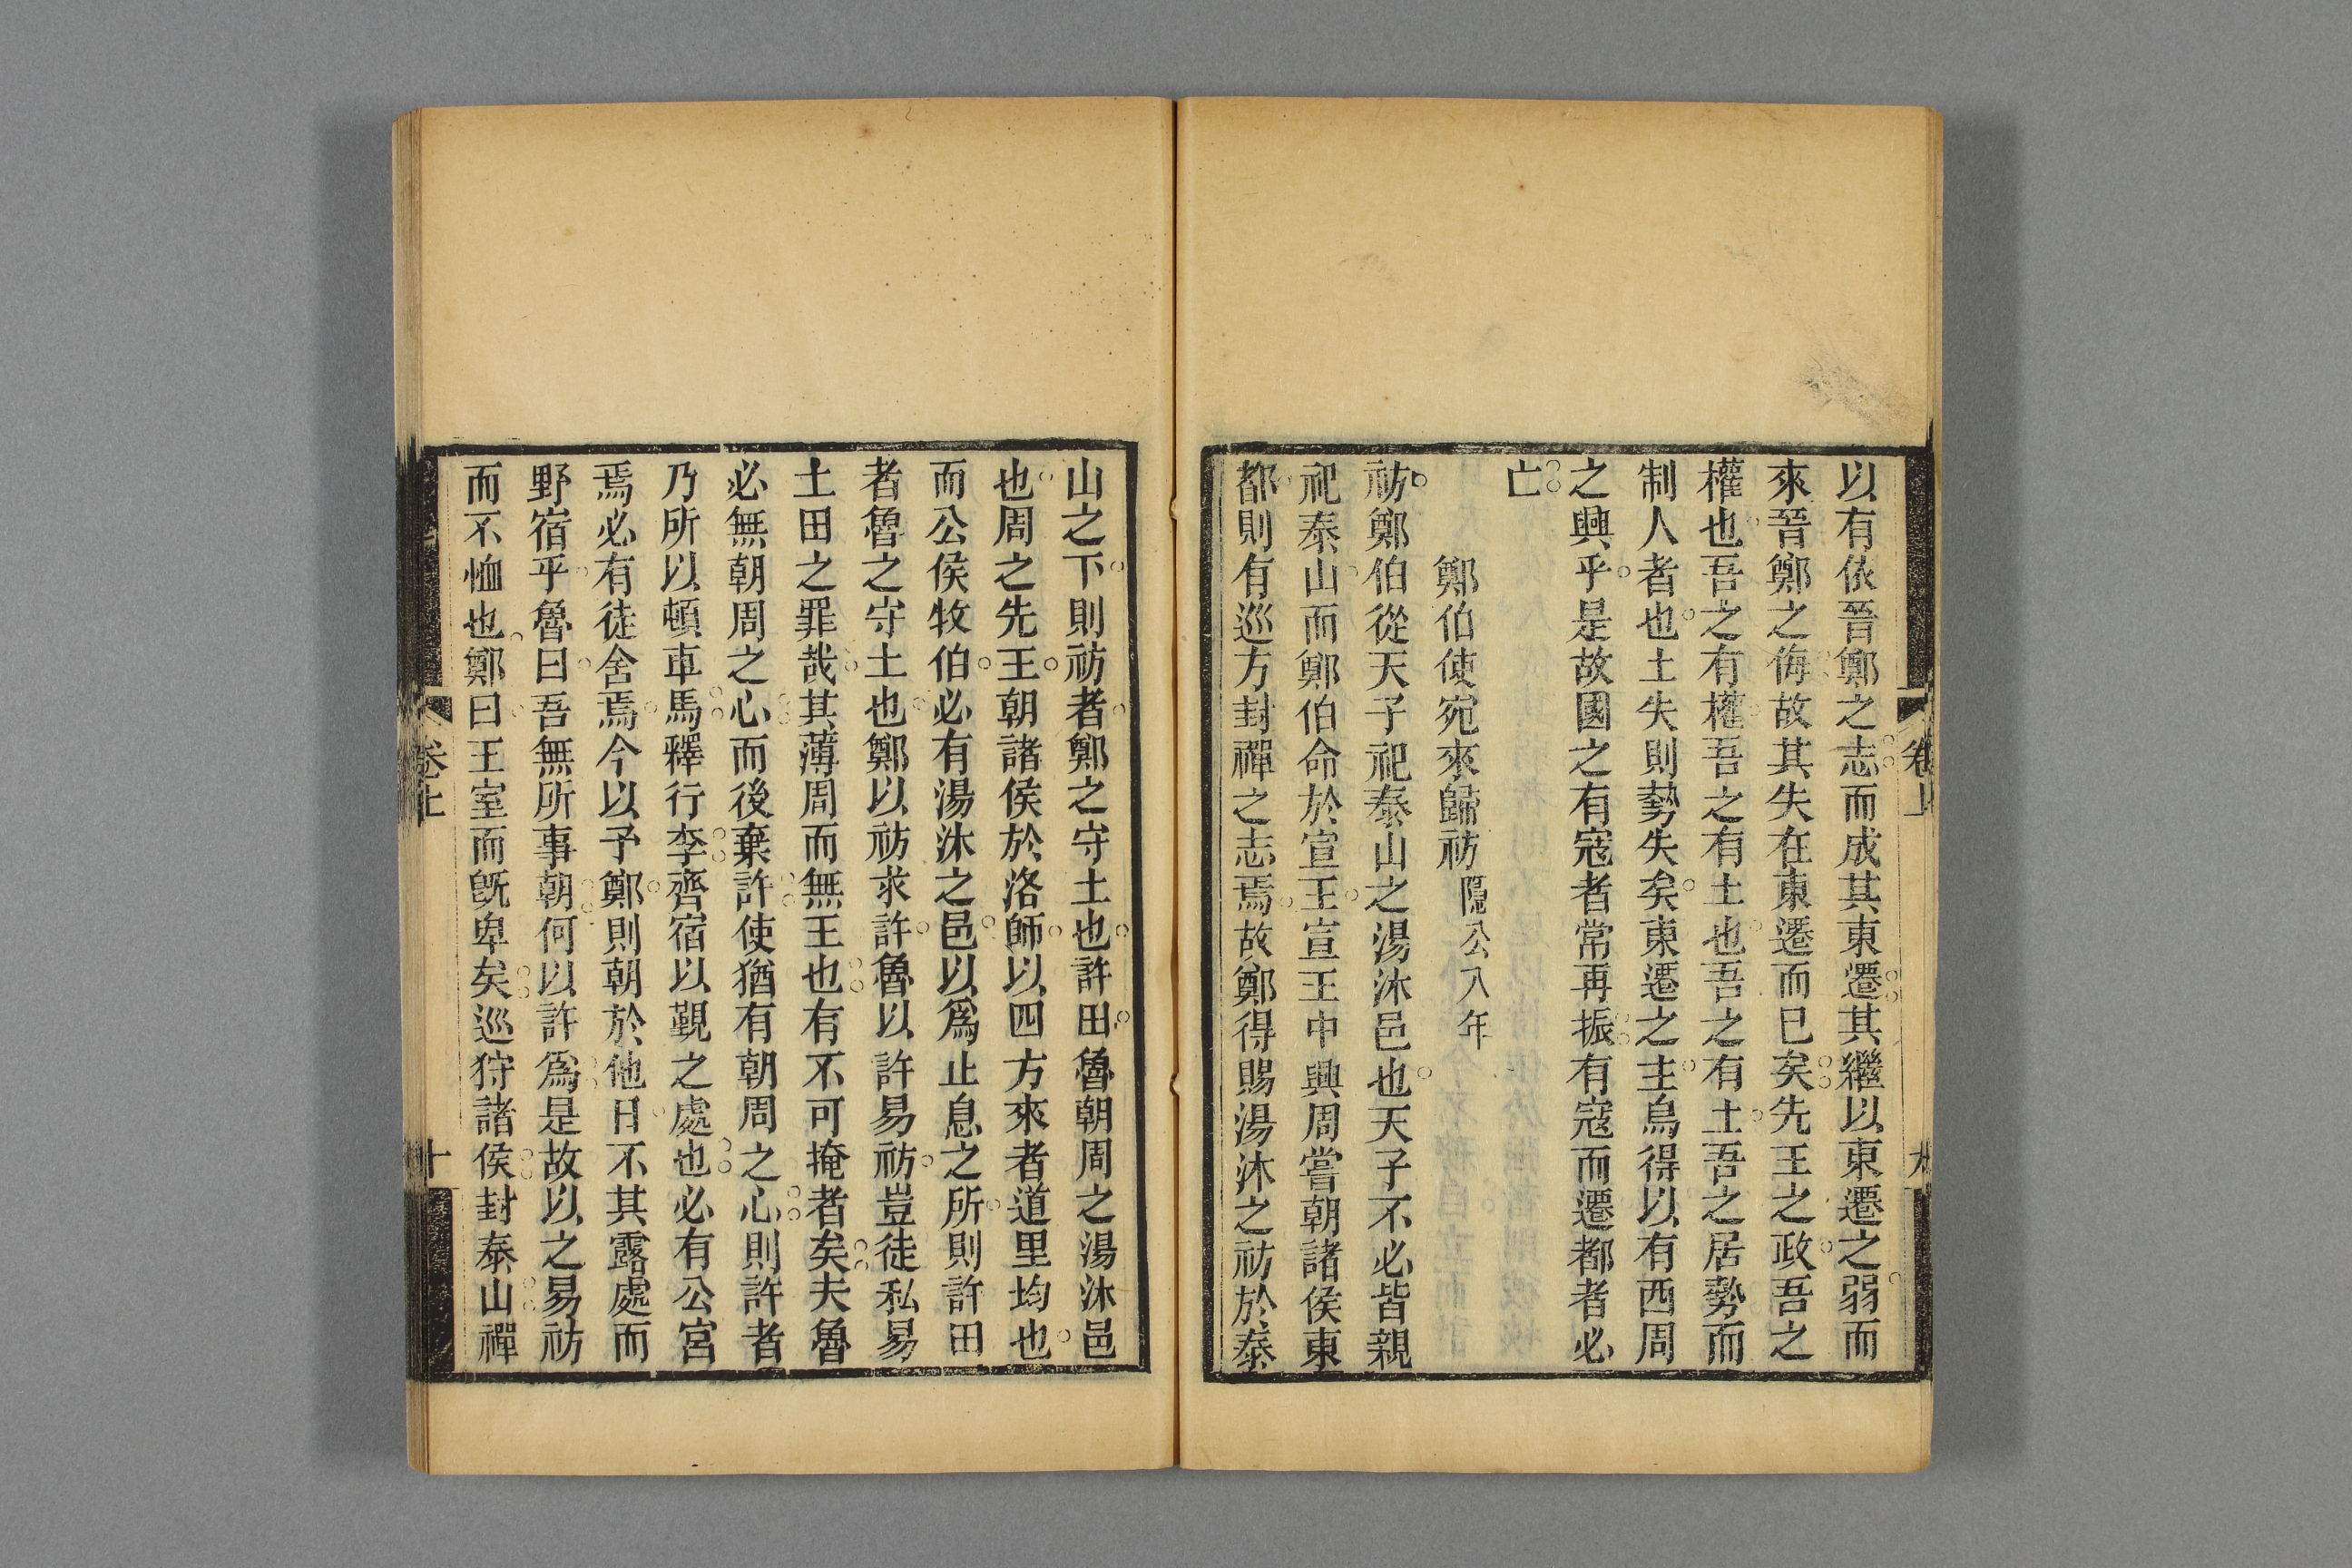 以有依晉鄭之志而成其東遷其繼以東遷之弱而
來晉鄭之侮故其失在東遷而已矣先王之政吾之
權也吾之有權吾之有土也吾之有土吾之居勢而
制人者也土失則勢失矣東遷之主烏得以有西周
之興乎是故國之有寇者常再振有寇而遷都者必
亡
鄭伯使宛來歸祊隱公八年
祊鄭伯從天子祀泰山之湯沐邑也天子不必皆親
祀泰山而鄭伯命於宣王宣王中興周嘗朝諸侯東
都則有巡方封禪之志焉故鄭得賜湯沐之祊於泰
山之下則祊者鄭之守土也許田魯朝周之湯沐邑
也周之先王朝諸侯於洛師以四方來者道里均也
而公侯牧伯必有湯沐之邑以爲止息之所則許田
者魯之守土也鄭以祊求許魯以許易祊豈徒私易
土田之罪哉其薄周而無王也有不可掩者矣夫魯
必無朝周之心而後棄許使猶有朝周之心則許者
乃所以頓車馬釋行李齊宿以覲之處也必有公宮
焉必有徒舍焉今以予鄭則朝於他日不其露處而
野宿乎魯曰吾無所事朝何以許爲是故以之易祊
而不恤也鄭曰王室而旣卑矣巡狩諸侯封泰山禪
卷上
十